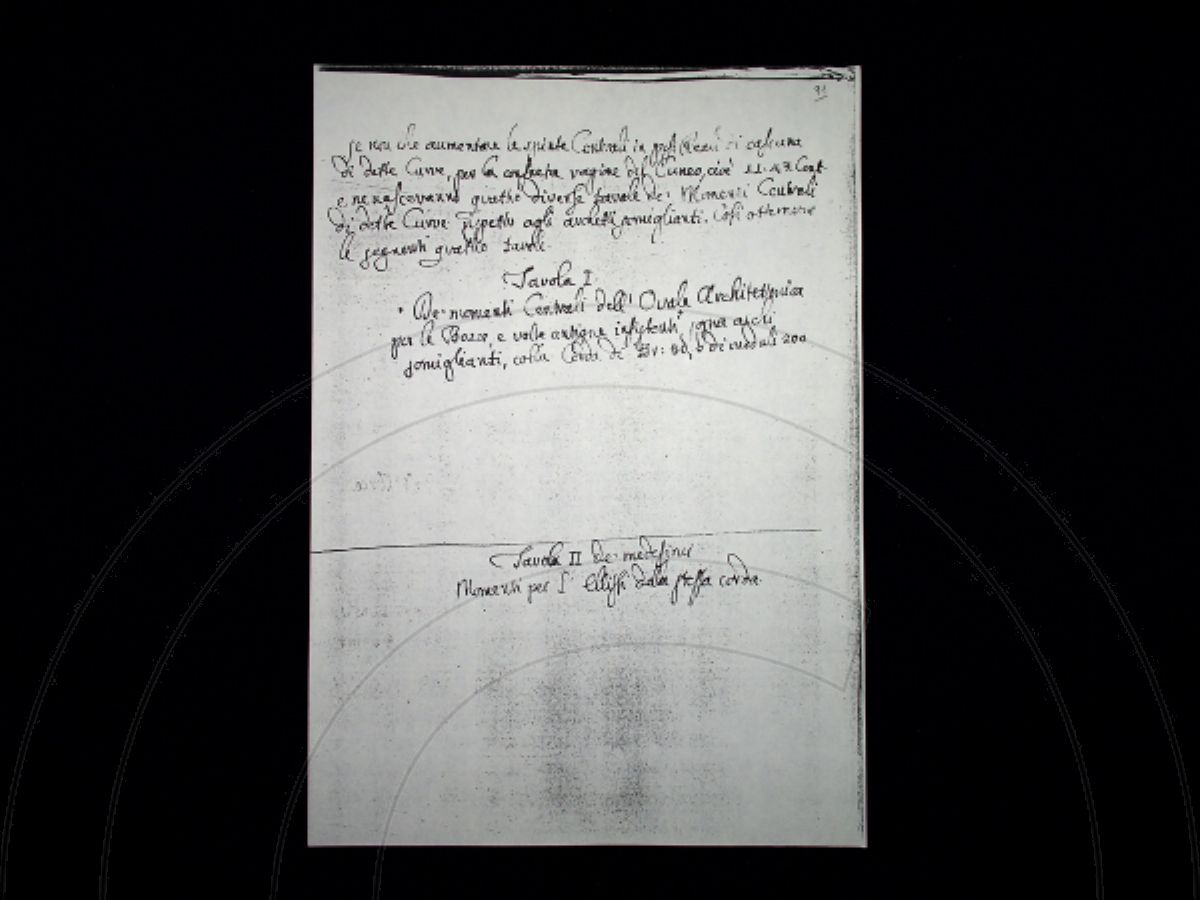 91
se non che aumentare le spinte Centrali in di
di dette Curve, per la ragione del Cuneo, cioè 11. 43 Cent
e ne nasceranno quattro diverse tavole de Momenti Centrali
di dette Curve rispetto agli archetti somiglianti. Così
le seguenti quattro tavole.
Tavola I.
De momenti Centrali dell' Ovale Architettonica
per le e volte sopra archi
somiglianti, colla Corda di 200
Tavola II De medesimi
Momenti per l' Ellissi dalla stessa corda